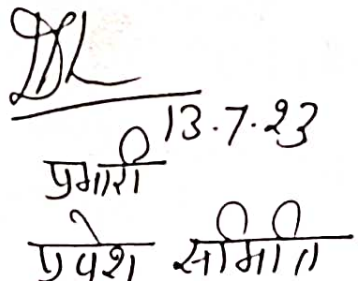 13.7.23
प्रभारी
प्रवेश समिति